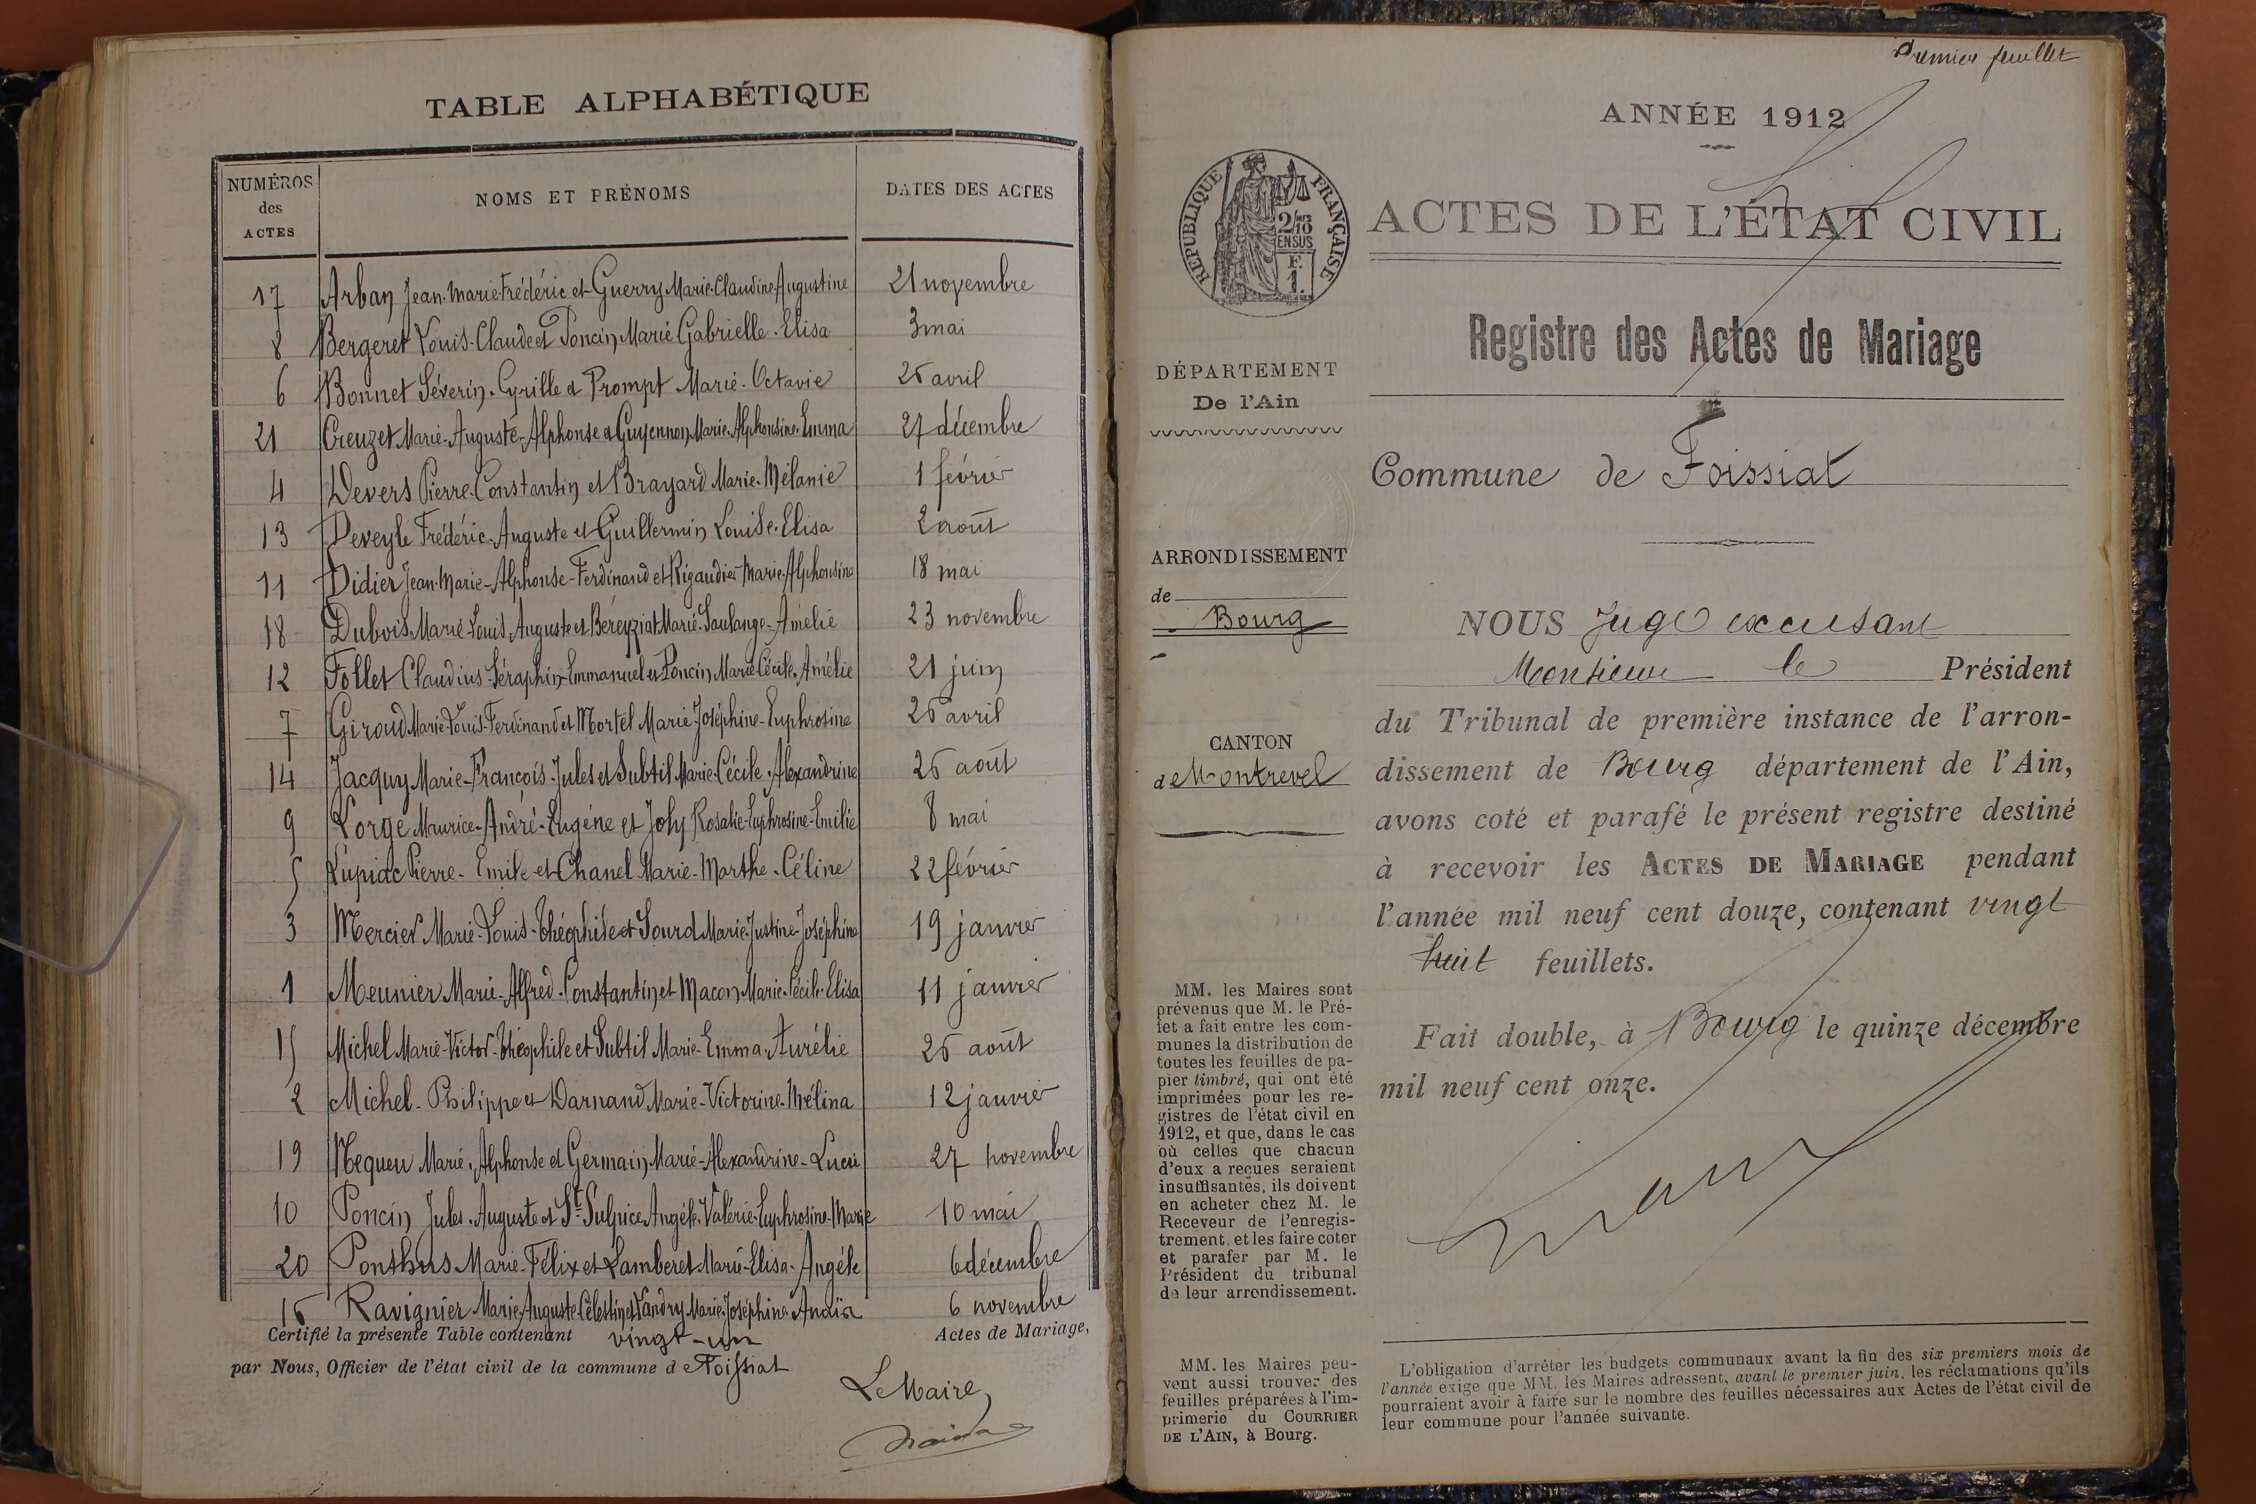 TABLE ALPHABÉTIQUE
NUMÉROS des ACTES | NOMS ET PRÉNOMS | DATES DES ACTES
17 Arban Jean-Marie-Frédéric et Guerry Marie-Claudine-Augustine 21 novembre
8 Bergeret Louis-Claude et Poncin Marie Gabrielle-Elisa 3 mai
6 Bonnet Séverin-Cyrille et Prompt Marie-Octavie 26 avril
21 Creuzet Marie-Auguste-Alphonse et Guyennon Marie-Alphonsine-Emma 27 décembre
4 Devers Pierre-Constantin et Brayard Marie-Mélanie 1 février
13 Deveyle Frédéric-Auguste et Guillermin Louise-Elisa 2 août
11 Didier Jean-Marie-Alphonse-Ferdinand et Rigaudier Marie-Alphonsine 18 mai
18 Dubois Marie-Louis Auguste et Béreyziat Marie-Soulange-Amélie 23 novembre
12 Follet Claudius-Séraphin-Emmanuel et Poncin Marie Cécile-Amélie 21 juin
7 Giroud Marie-Louis-Ferdinand et Mortel Marie Joséphine-Euphrosine 26 avril
14 Jacquy Marie-François-Jules et Subtil Marie-Cécile-Alexandrine 26 août
9 Lorge Maurice-André-Eugène et Joly Rosalie-Euphrosine-Emilie 8 mai
5 Lupiac Pierre-Emile et Chanel Marie-Marthe-Céline 22 février
3 Mercier Marie-Louis-Théophile et Sourd Marie-Justine-Joséphine 19 janvier
1 Meunier Marie-Alfred-Constantin et Macon Marie-Cécile-Elisa 11 janvier
15 Michel Marie-Victor-Théophile et Subtil Marie-Emma-Aurélie 26 août
2 Michel-Philippe et Darnand Marie-Victorine-Mélina 12 janvier
19 Nequeu Marie-Alphonse et Germain Marie-Alexandrine-Lucie 27 novembre
10 Poncin Jules-Auguste et St-Sulpice Angèle-Valérie-Euphrosine-Marie 10 mai
20 Ponthus Marie-Félix et Lamberet Marie-Elisa-Angèle 6 décembre
16 Ravignier Marie-Auguste-Célestin et Vandry Marie-Joséphine-Anaïs 6 novembre
Certifié la présente Table contenant vingt-un Actes de Mariage,
par Nous, Officier de l'état civil de la commune d Foissiat
Le Maire
Premier feuillet
ANNÉE 1912
RÉPUBLIQUE FRANÇAISE
2/10
EN SUS
F.
1.
ACTES DE L'ÉTAT CIVIL
Registre des Actes de Mariage
DÉPARTEMENT
De l'Ain
Commune de Foissiat
ARRONDISSEMENT
de
Bourg
CANTON
de Montrevel
NOUS Juge excusant
Monsieur le Président
du Tribunal de première instance de l'arron-
dissement de Bourg département de l'Ain,
avons coté et parafé le présent registre destiné
à recevoir les ACTES DE MARIAGE pendant
l'année mil neuf cent douze, contenant vingt
huit feuillets.
Fait double, à Bourg le quinze décembre
mil neuf cent onze.
MM. les Maires sont
prévenus que M. le Pré-
fet a fait entre les com-
munes la distribution de
toutes les feuilles de pa-
pier timbré, qui ont été
imprimées pour les re-
gistres de l'état civil en
1912, et que, dans le cas
où celles que chacun
d'eux a reçues seraient
insuffisantes, ils doivent
en acheter chez M. le
Receveur de l'enregis-
trement, et les faire coter
et parafer par M. le
Président du tribunal
de leur arrondissement.
MM. les Maires peu-
vent aussi trouver des
feuilles préparées à l'im-
primerie du COURRIER
DE L'AIN, à Bourg.
L'obligation d'arrêter les budgets communaux avant la fin des six premiers mois de
l'année exige que MM. les Maires adressent, avant le premier juin, les réclamations qu'ils
pourraient avoir à faire sur le nombre des feuilles nécessaires aux Actes de l'état civil de
leur commune pour l'année suivante.